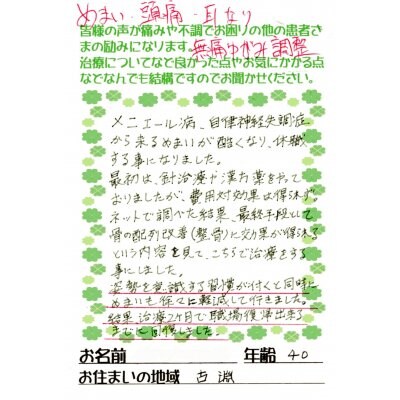 めまい・頭痛・耳なり
皆様の声が痛みや不調でお困りの他の患者さ
まの励みになります。無痛ゆがみ調整
治療についてなど良かった点やお気にかかる点
などなんでも結構ですのでお聞かせください。
メニエール病、自律神経失調症
から来るめまいが酷くなり、休職
する事になりました。
最初は、針治療や漢方薬をやって
おりましたが、費用対効果は得れず。
ネットで調べた結果、最終手段として
骨の配列改善(整骨)に効果が得れる
という内容を見て、こちらで治療をする
事にしました。
姿勢を意識する習慣が付くと同時に
めまいも徐々に軽減して行きました。
結果、治療2ヶ月で職場復帰出来る
までに回復しました。
お名前 年齢 40
お住まいの地域 古淵